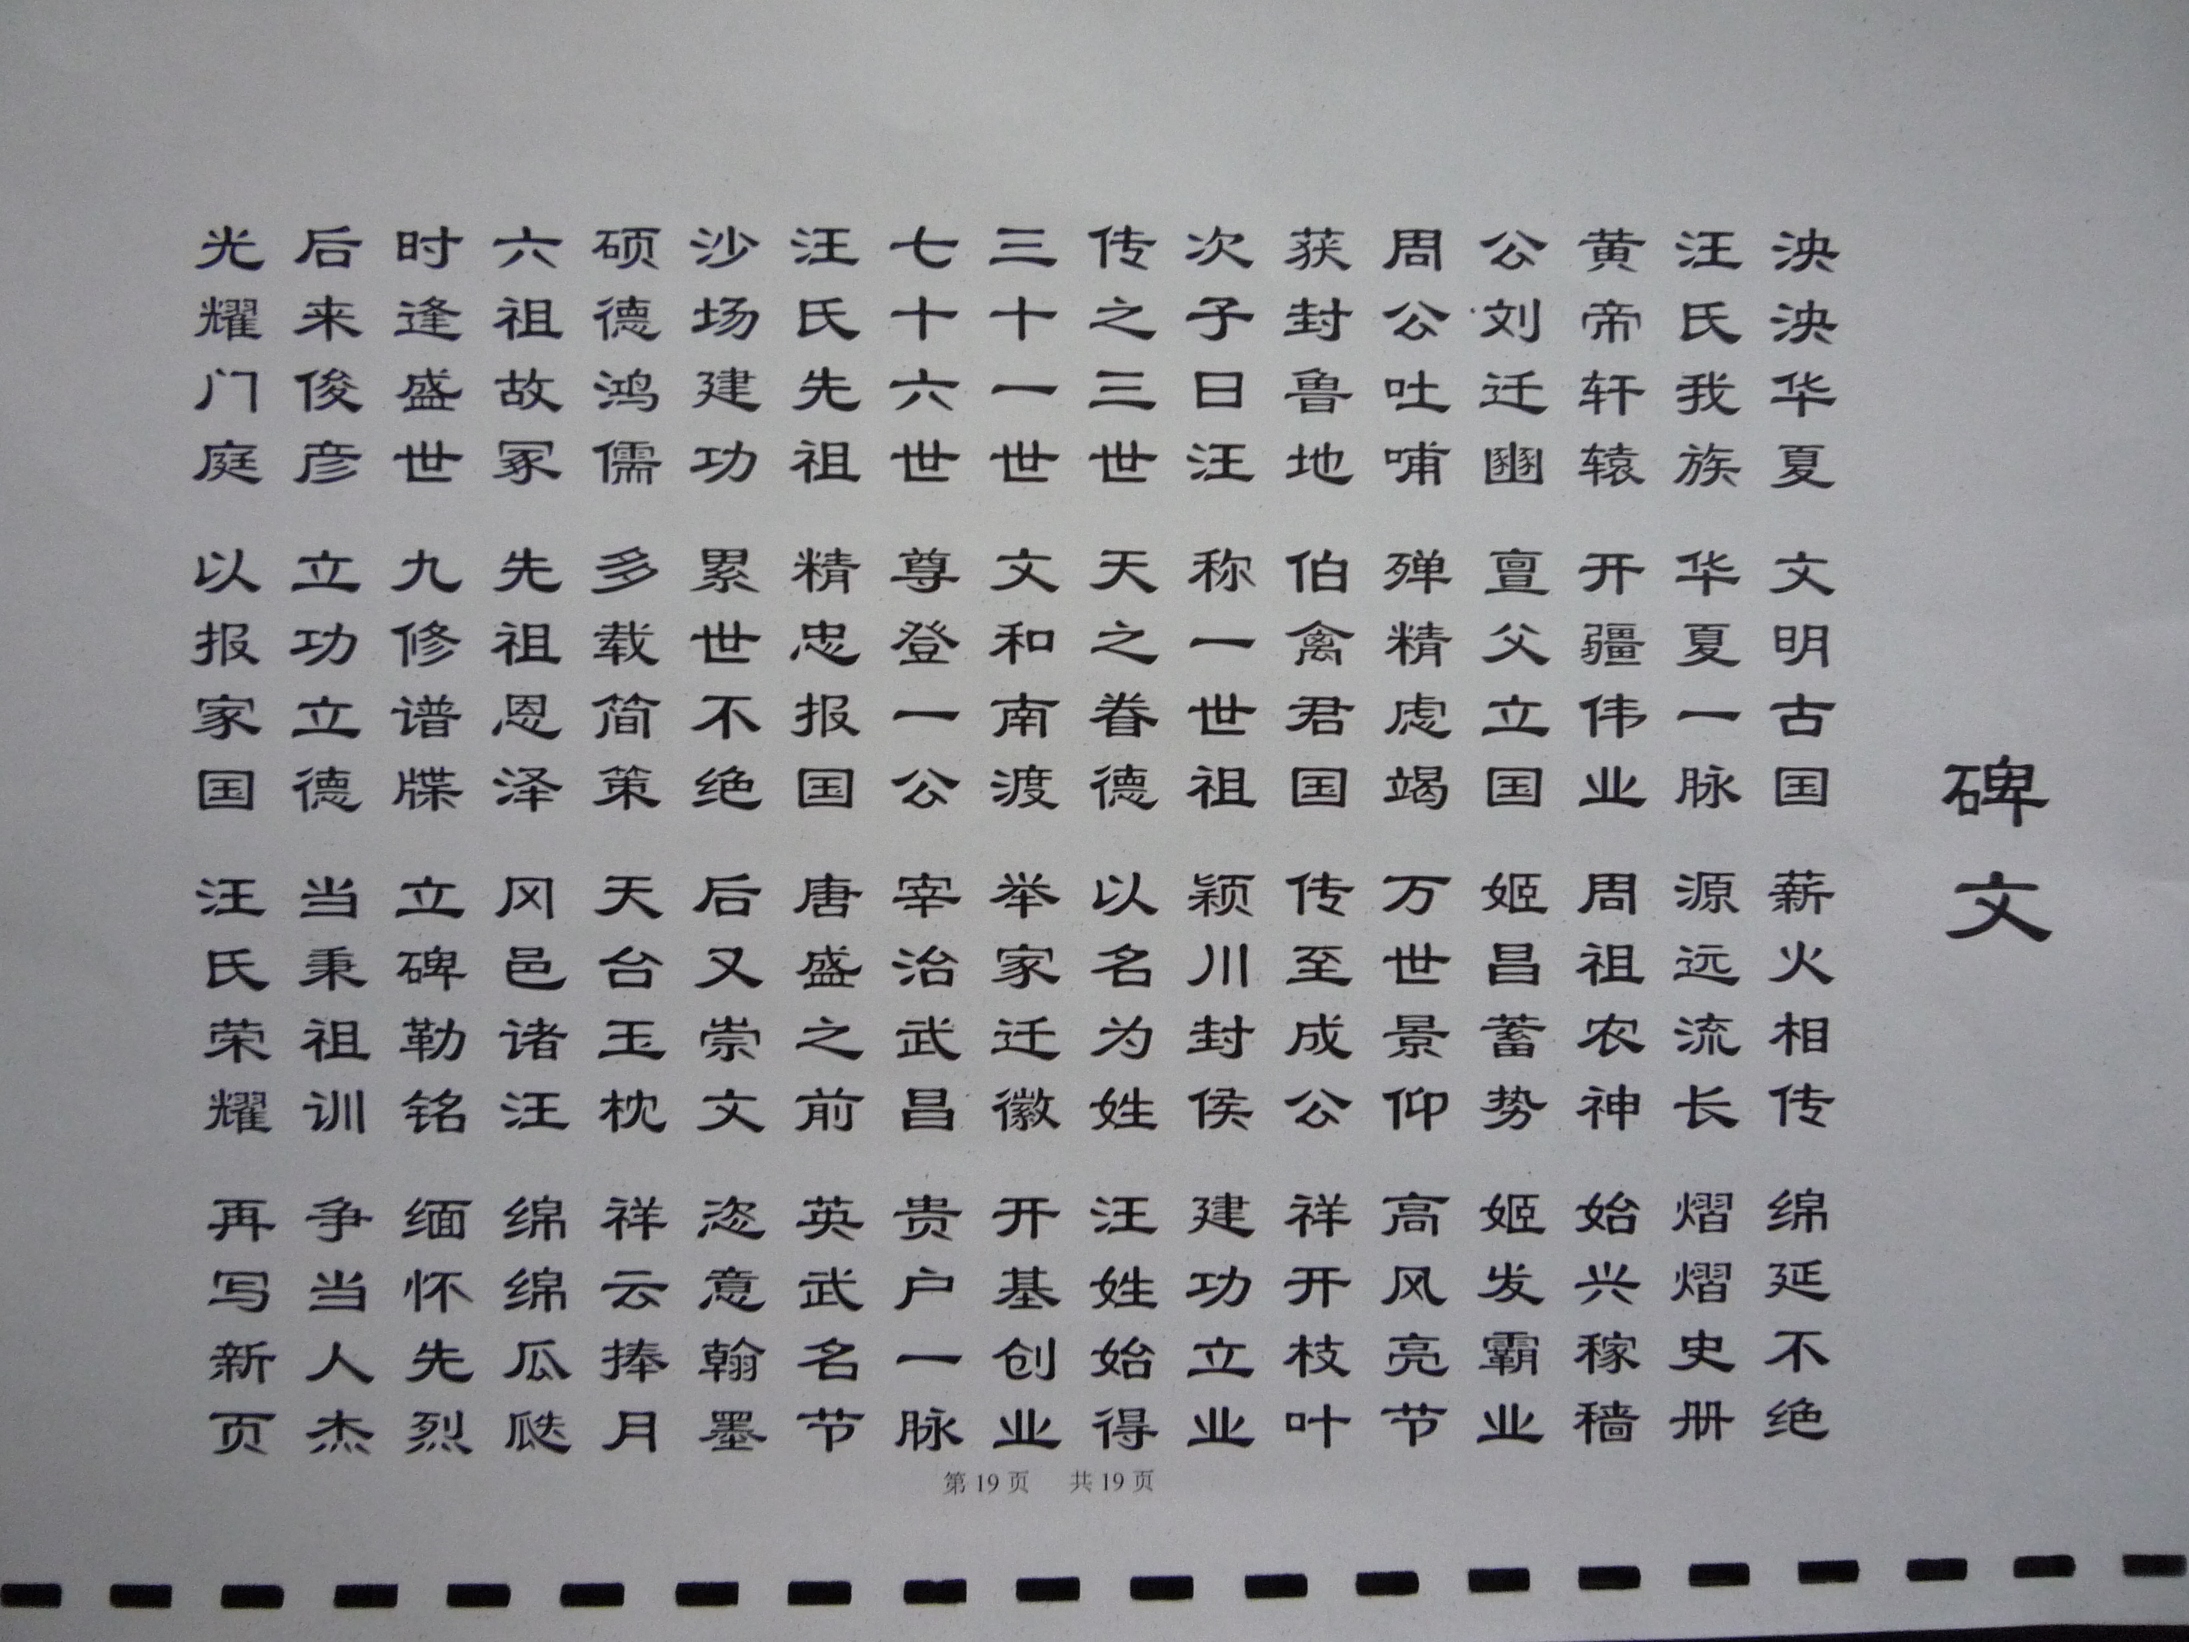 碑文
泱泱华夏 文明古国 薪火相传 绵延不绝
汪氏我族 华夏一脉 源远流长 熠熠史册
黄帝轩辕 开疆伟业 周祖农神 始兴稼穑
公刘迁豳 亶父立国 姬昌蓄势 姬发霸业
周公吐哺 殚精虑竭 万世景仰 高风亮节
获封鲁地 伯禽君国 传至成公 祥开枝叶
次子日汪 称一世祖 颖川封侯 建功立业
传之三世 天之眷德 以名为姓 汪姓始得
三十一世 文和南渡 举家迁徽 开基创业
七十六世 尊登一公 宰治武昌 贵户一脉
汪氏先祖 精忠报国 唐盛之前 英武名节
沙场建功 累世不绝 后又崇文 恣意翰墨
硕德鸿儒 多载简策 天台玉枕 祥云捧月
六祖故冢 先祖恩泽 冈邑诸汪 绵绵瓜瓞
时逢盛世 九修谱牒 立碑勒铭 缅怀先烈
后来俊彦 立功立德 当秉祖训 争当人杰
光耀门庭 以报家国 汪氏荣耀 再写新页
第 19 页 共 19 页